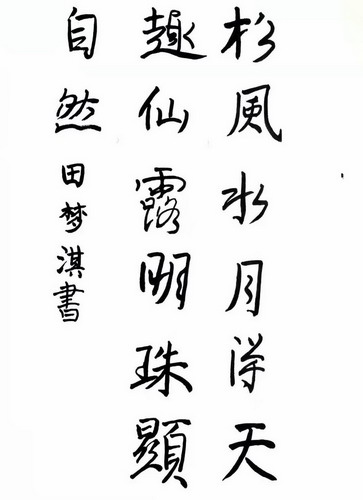 松風水月得天
趣仙露明珠顯
自然
田梦淇書